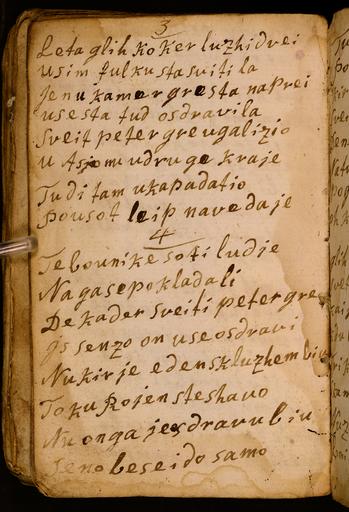 3
Leta glih koker luzhi dvei
usim fulkusta svitila
Je nu kamer gresta naprei
usesta tud osdravila
Sveit peter gre ugalizio
u Asjomu druge kraje
Tudi tam ukapadatio
pousot leip navedaje
4
Te bounike so ti ludje
Na gase pokladali
De kader sveiti peter gre
gs senzo on use osdravi
Nukir je eden skluzhem biu
Toku Rojen steshavo
Nu onga je sdravu biu
Seno beseido samo